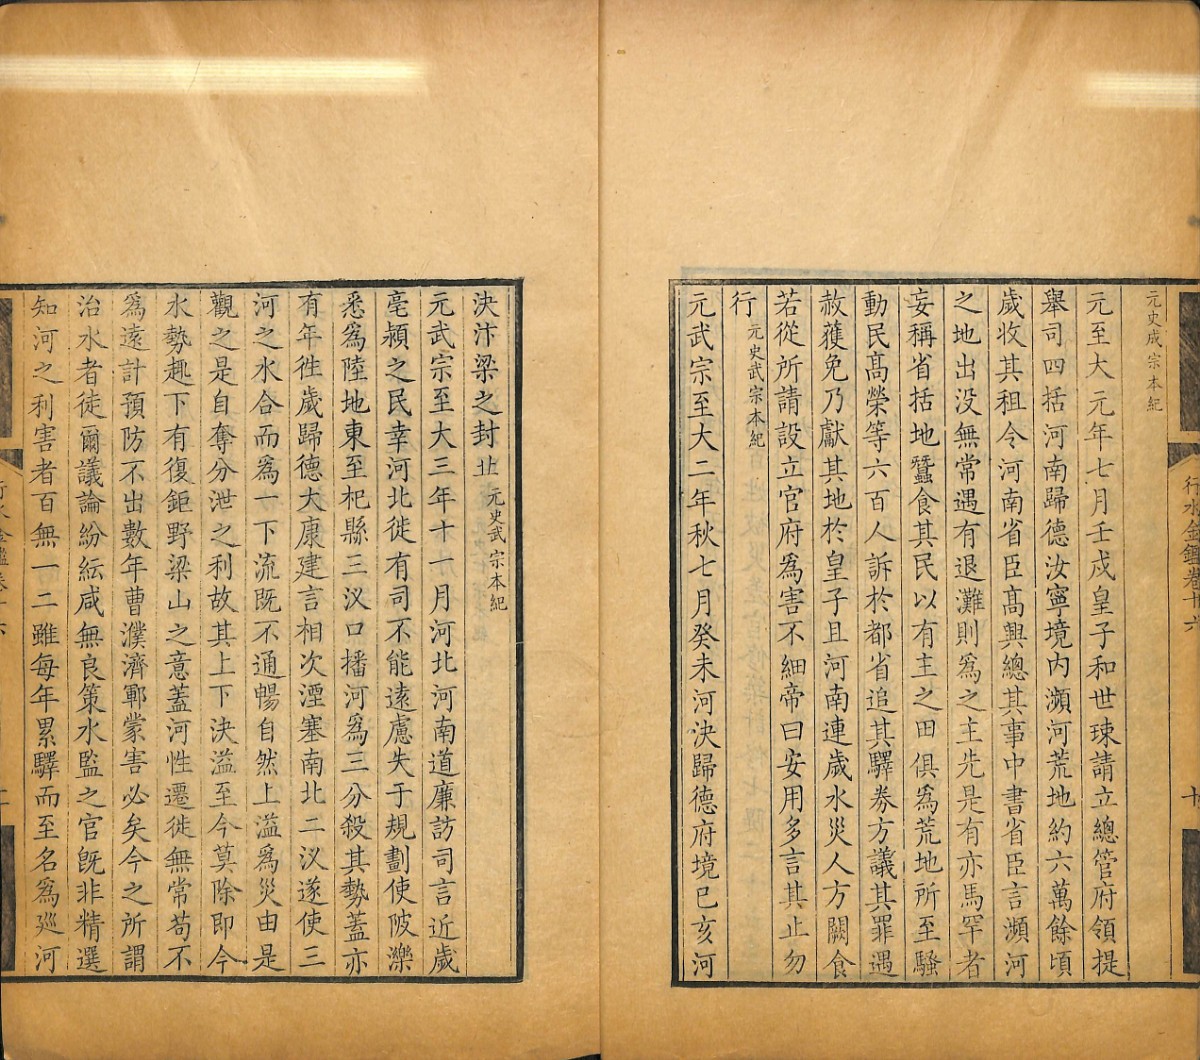 行水金鑑卷十六
元史成宗本紀
元至大元年七月壬戍皇子和世㻋請立總管府領提
舉司四括河南歸德汝寧境內瀕河荒地約六萬餘頃
歲收其租令河南省臣高興總其事中書省臣言瀕河
之地出没無常遇有退灘則爲之主先是有亦馬罕者
妄稱省括地蠶食其民以有主之田俱爲荒地所至騷
動民高榮等六百人訴於都省追其驛券方議其罪遇
赦獲免乃獻其地於皇子且河南連歲水災人方闕食
若從所請設立官府爲害不細帝曰安用多言其止勿
行元史武宗本紀
元武宗至大二年秋七月癸未河決歸德府境已亥河
決汴梁之封丘元史武宗本紀
元武宗至大三年十一月河北河南道廉訪司言近歲
亳潁之民幸河北徙有司不能遠慮失于規劃使陂濼
悉爲陸地東至杞縣三汊口播河爲三分殺其勢蓋亦
有年徃歲歸德大康建言相次湮塞南北二汊遂使三
河之水合而爲一下流既不通暢自然上溢爲災由是
觀之是自奪分泄之利故其上下決溢至今莫除即今
水勢趣下有復鉅野梁山之意蓋河性遷徙無常苟不
爲遠計預防不出數年曹濮濟鄆蒙害必矣今之所謂
治水者徒爾議論紛紜咸無良策水監之官既非精選
知河之利害者百無一二雖每年累驛而至名爲廵河